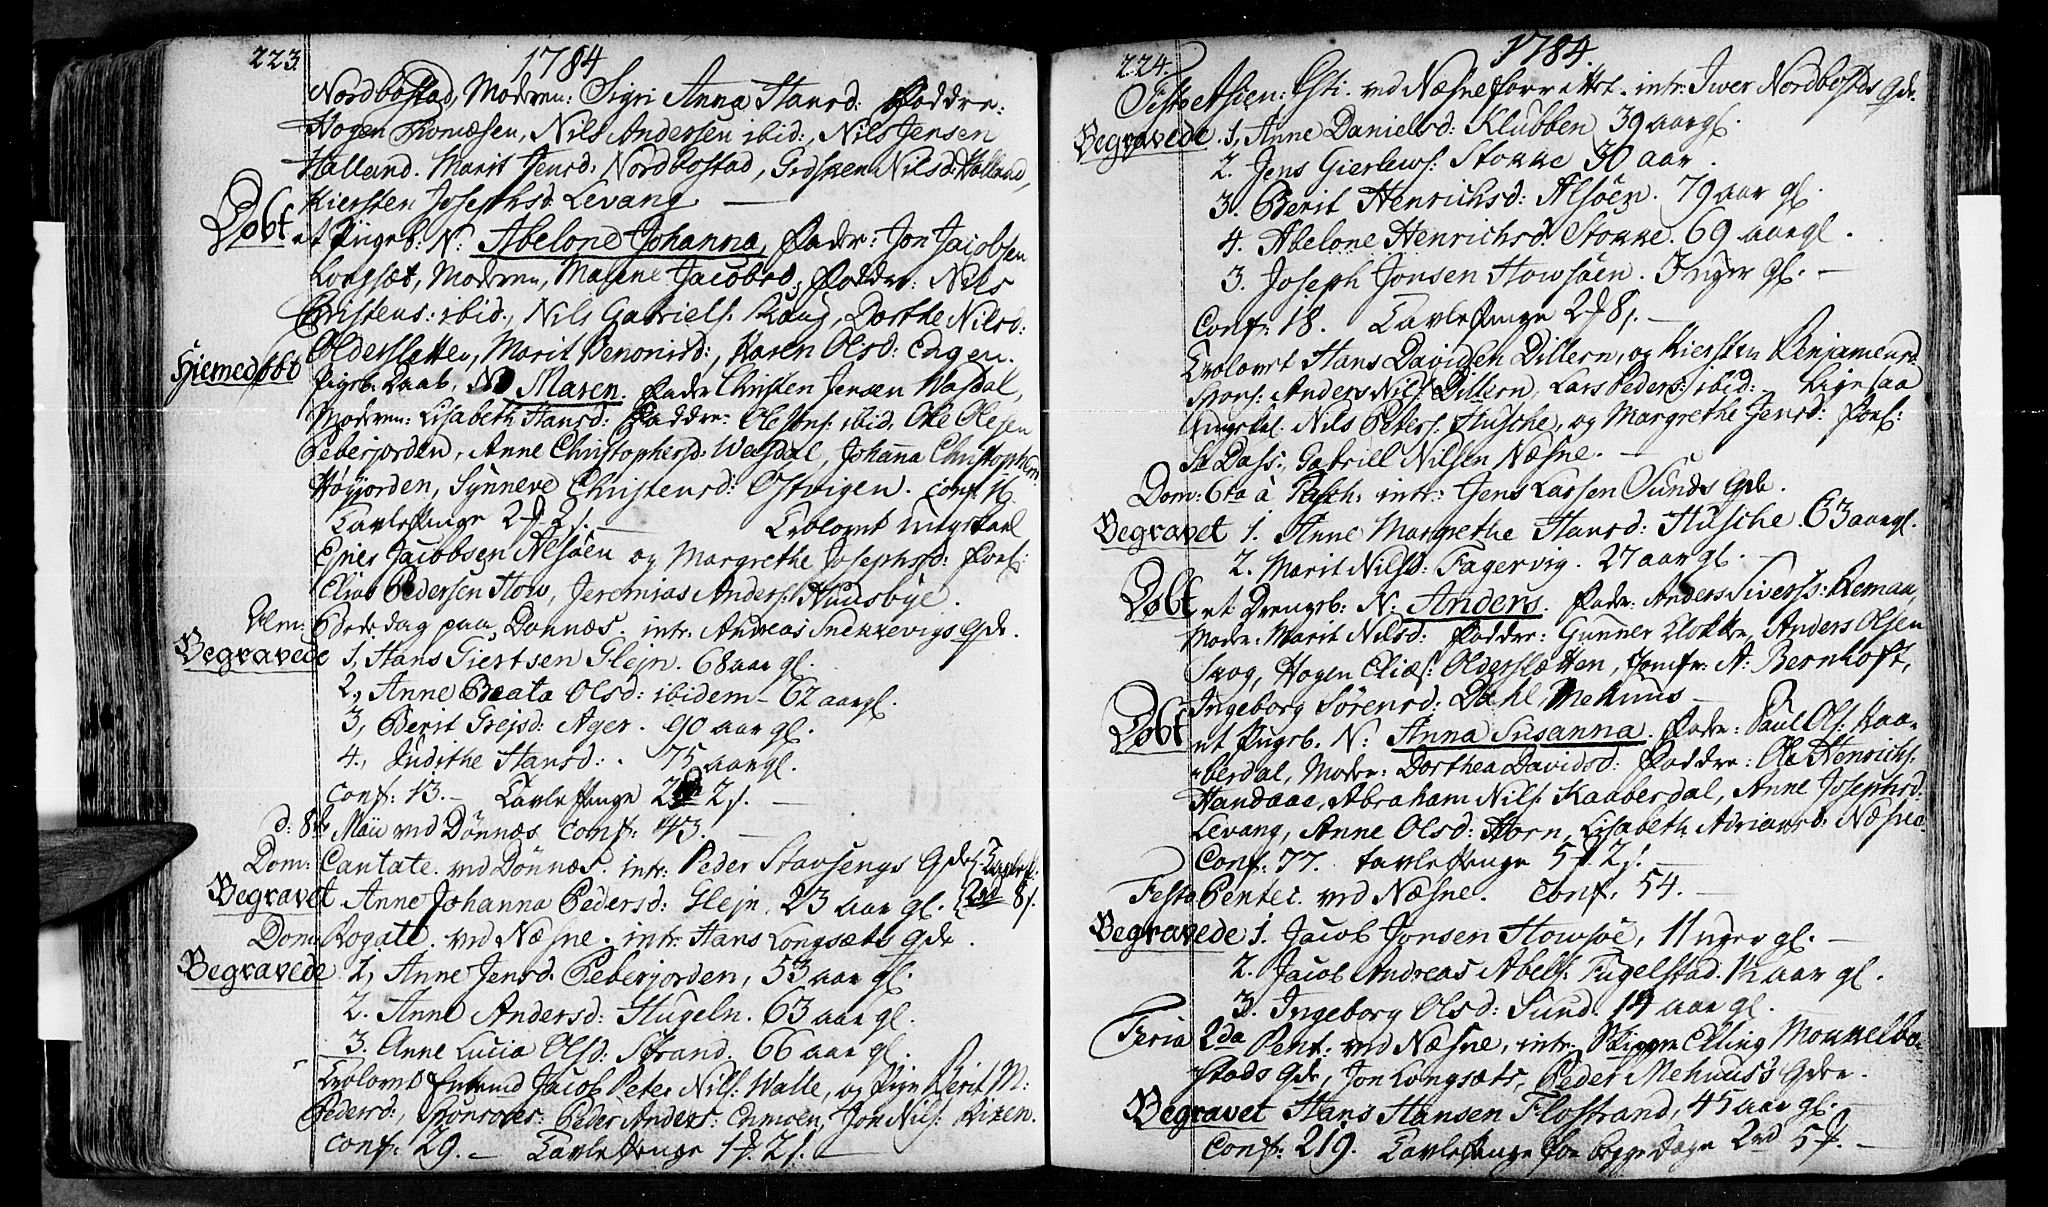 223.
1784
Nordbostad, Modren: Sigri Anna Hansd: Faddre:
Hogen Thomæsen, Nils Andersen ibid:, Nils Jensen
Halland. Marit Jensd: Nordbostad, Nilsd: Halland,
Kiersten Josephsd: Levang —
Døbt et Pigeb: N: Abelone Johanna, Fadr: Jon Jacobsen
Longsæt, Modren, Marne Jacobsd; Faddr: Nils
Christens: ibid:, Nils Gabriels: Haug, Dorthe Nilsd:
Oldersletten, Marit Benonisd:, Karen Olsd: Engen.
Hiemedøbt Pigeb: Daab, N: Maren. Fadr Christen Jensen Wasdal,
Modren: Lisabeth Hansd: Faddre: Ole ibid. Ole Olesen
Peberjorden, Anne Christophersd: Wasdal, Johanna Christophersd
Høyjorden, Synneve Christensd: Østvigen. Conf: 16
Tavle Penge 2 # 2 s. — Trolovet Ungkarl
Jacobsen Alsøen og Margrethe Josephsd: Spons:
Elias Pedersen How, Jeremias Anders: Huusbye.
Alm: Bededag paa Dønnæs. intr: Andreas Snekkevigs Qde.
Begravede 1, Hans Giertsen Glejn. 68 aar gl.
2, Anne Beata Olsd: ibidem — 62 aar gl.
3, Berit Grejsd: Ager. 90 aar gl.
4., Judithe Hansd: . 75 aar gl.
Conf: 13. — Tavle Penge 2 # 2 s. —
d: 8de Maii ved Dönnæs Conf: 43. —
Dom: Cantate. ved Dönnæs. intr: Peder Stavsengs Qde
Begravet Anne Johanna Pedersd: Glejn. 23 aar gl. 2rd 8 s.
Dom: Rogate. ved Næsne. intr: Hans Longsæts Qde.
Begravede 1, Anne Jensd: Peberjorden, 53 aar gl.
2. Anne Andersd: Hugeln. 63 aar gl.
3. Anne Lucia Olsd: Strand. 66 aar gl.
Trolovet Jacob Peter Nils: Walle, og Pige Berit M:
Pedersd:, Sponsores: Peder Anders: Jon Nils:
Conf: 29. — Tavle Penge 1 # 2 s. —
224.
1784.
Festo Ascen: Xsti. ved Næsne forrettet. intr: Iwer Nordbostds Qde.
Begravede 1, Anne Danielsd: Klubben 39 aar gl.
2. Jens Gierlews: Stokke 30 aar.
3. Berit Henrichsd: Alsøen. 79 aar gl.
4. Abelone Henrichsd: Stokke. 69 aar gl.
3. Joseph Jonsen Howsøen. 5 uger gl. —
Conf: 18. Tavle Penge 2 # 8 s. —
Trolovet Hans Davidsen Dillern, og Kiersten Benjaminsd:
Spons: Anders Nils: Dillern, Lars Peders: ibid: — Ligesaa
Ungkal. Nils Peters: Husche, og Margrethe Jensd: Sponsf:
Dass:, Gabriell Nilsen Næsne. —
Dom: 6ta à Pasch: intr: Jens Larsen Sunds Qde.
Begravet 1. Anne Margrethe Hansd: Husche. 63 aar gl.
2. Marit Nilsd: Fagervig. 27 aar gl. —
Døbt et Drengeb: N: Anders. Fadr: Anders Siverss: Reman,
Modr: Marit Nilsd: Faddre: Gunner Kokke, Anders Olsen
Skog, Hogen Elias: Oldersletten, Jomfr: A: Bernhoft,
Ingeborg Sørensd: Dahl Mehuus —
Døbt et Pigeb. N: Anna Susanna. Fadr: Paul Ols: Kaa-
berdal, Modr: Dorthea Davidsd: Faddre: Ole Henrichs:
Handaae, Abraham Nils: Kaaberdal, Anne Josephsd:
Levang, Anne Olsd: Horn, Lisabeth Adriansd: Næsne.
Conf: 77. Tavle Penge 5 # 2 s. —
Festo Pentec. ved Næsne. Conf: 54. —
Begravede 1. Jacob Jonsen Howsøe, 11 uger gl. —
2. Jacob Andreas Abels: Fugelstad. 1½ aar gl.
3. Ingeborg Olsd: Sund. 14 aar gl.
Feria 2da Pent: ved Næsne, intr: Elling Mokkelbo-
stads Qde, Jon Longsæts, Peder Mehuus's Qder.
Begravet Hans Hansen Flostrand, 45 aar gl. —
Conf: 219. Tavle Penge for begge Dage 2rd 5 #. —